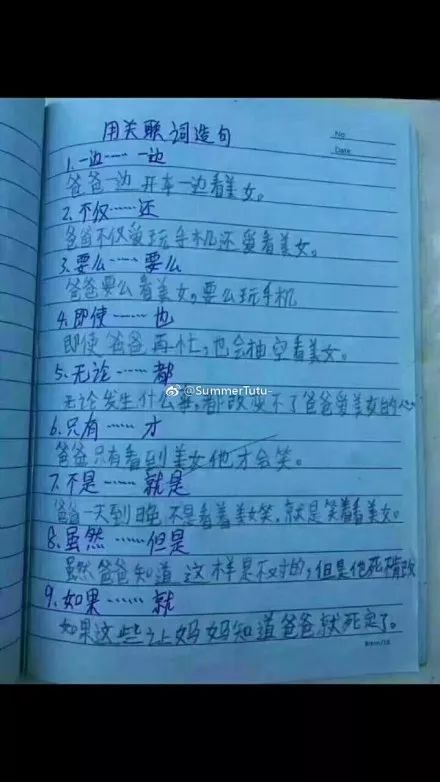 用关联词造句
No
Date
1.一边……一边
爸爸一边开车一边看美女。
2.不仅……还
爸爸不仅爱玩手机还爱看美女。
3.要么……要么
爸爸要么看美女,要么玩手机
4.即使……也
即使爸爸再忙,也会抽空看美女。
5.无论……都
无论发生什么事,都改变不了爸爸爱美女的心
@SummerTutu-
6.只有……才
爸爸只有看到美女他才会笑。
7.不是……就是
爸爸一天到晚不是看着美女笑,就是笑着看美女。
8.虽然……但是
虽然爸爸知道这样是不对的,但是他死悔改
9.如果……就
如果这些让妈妈知道爸爸就死定了。